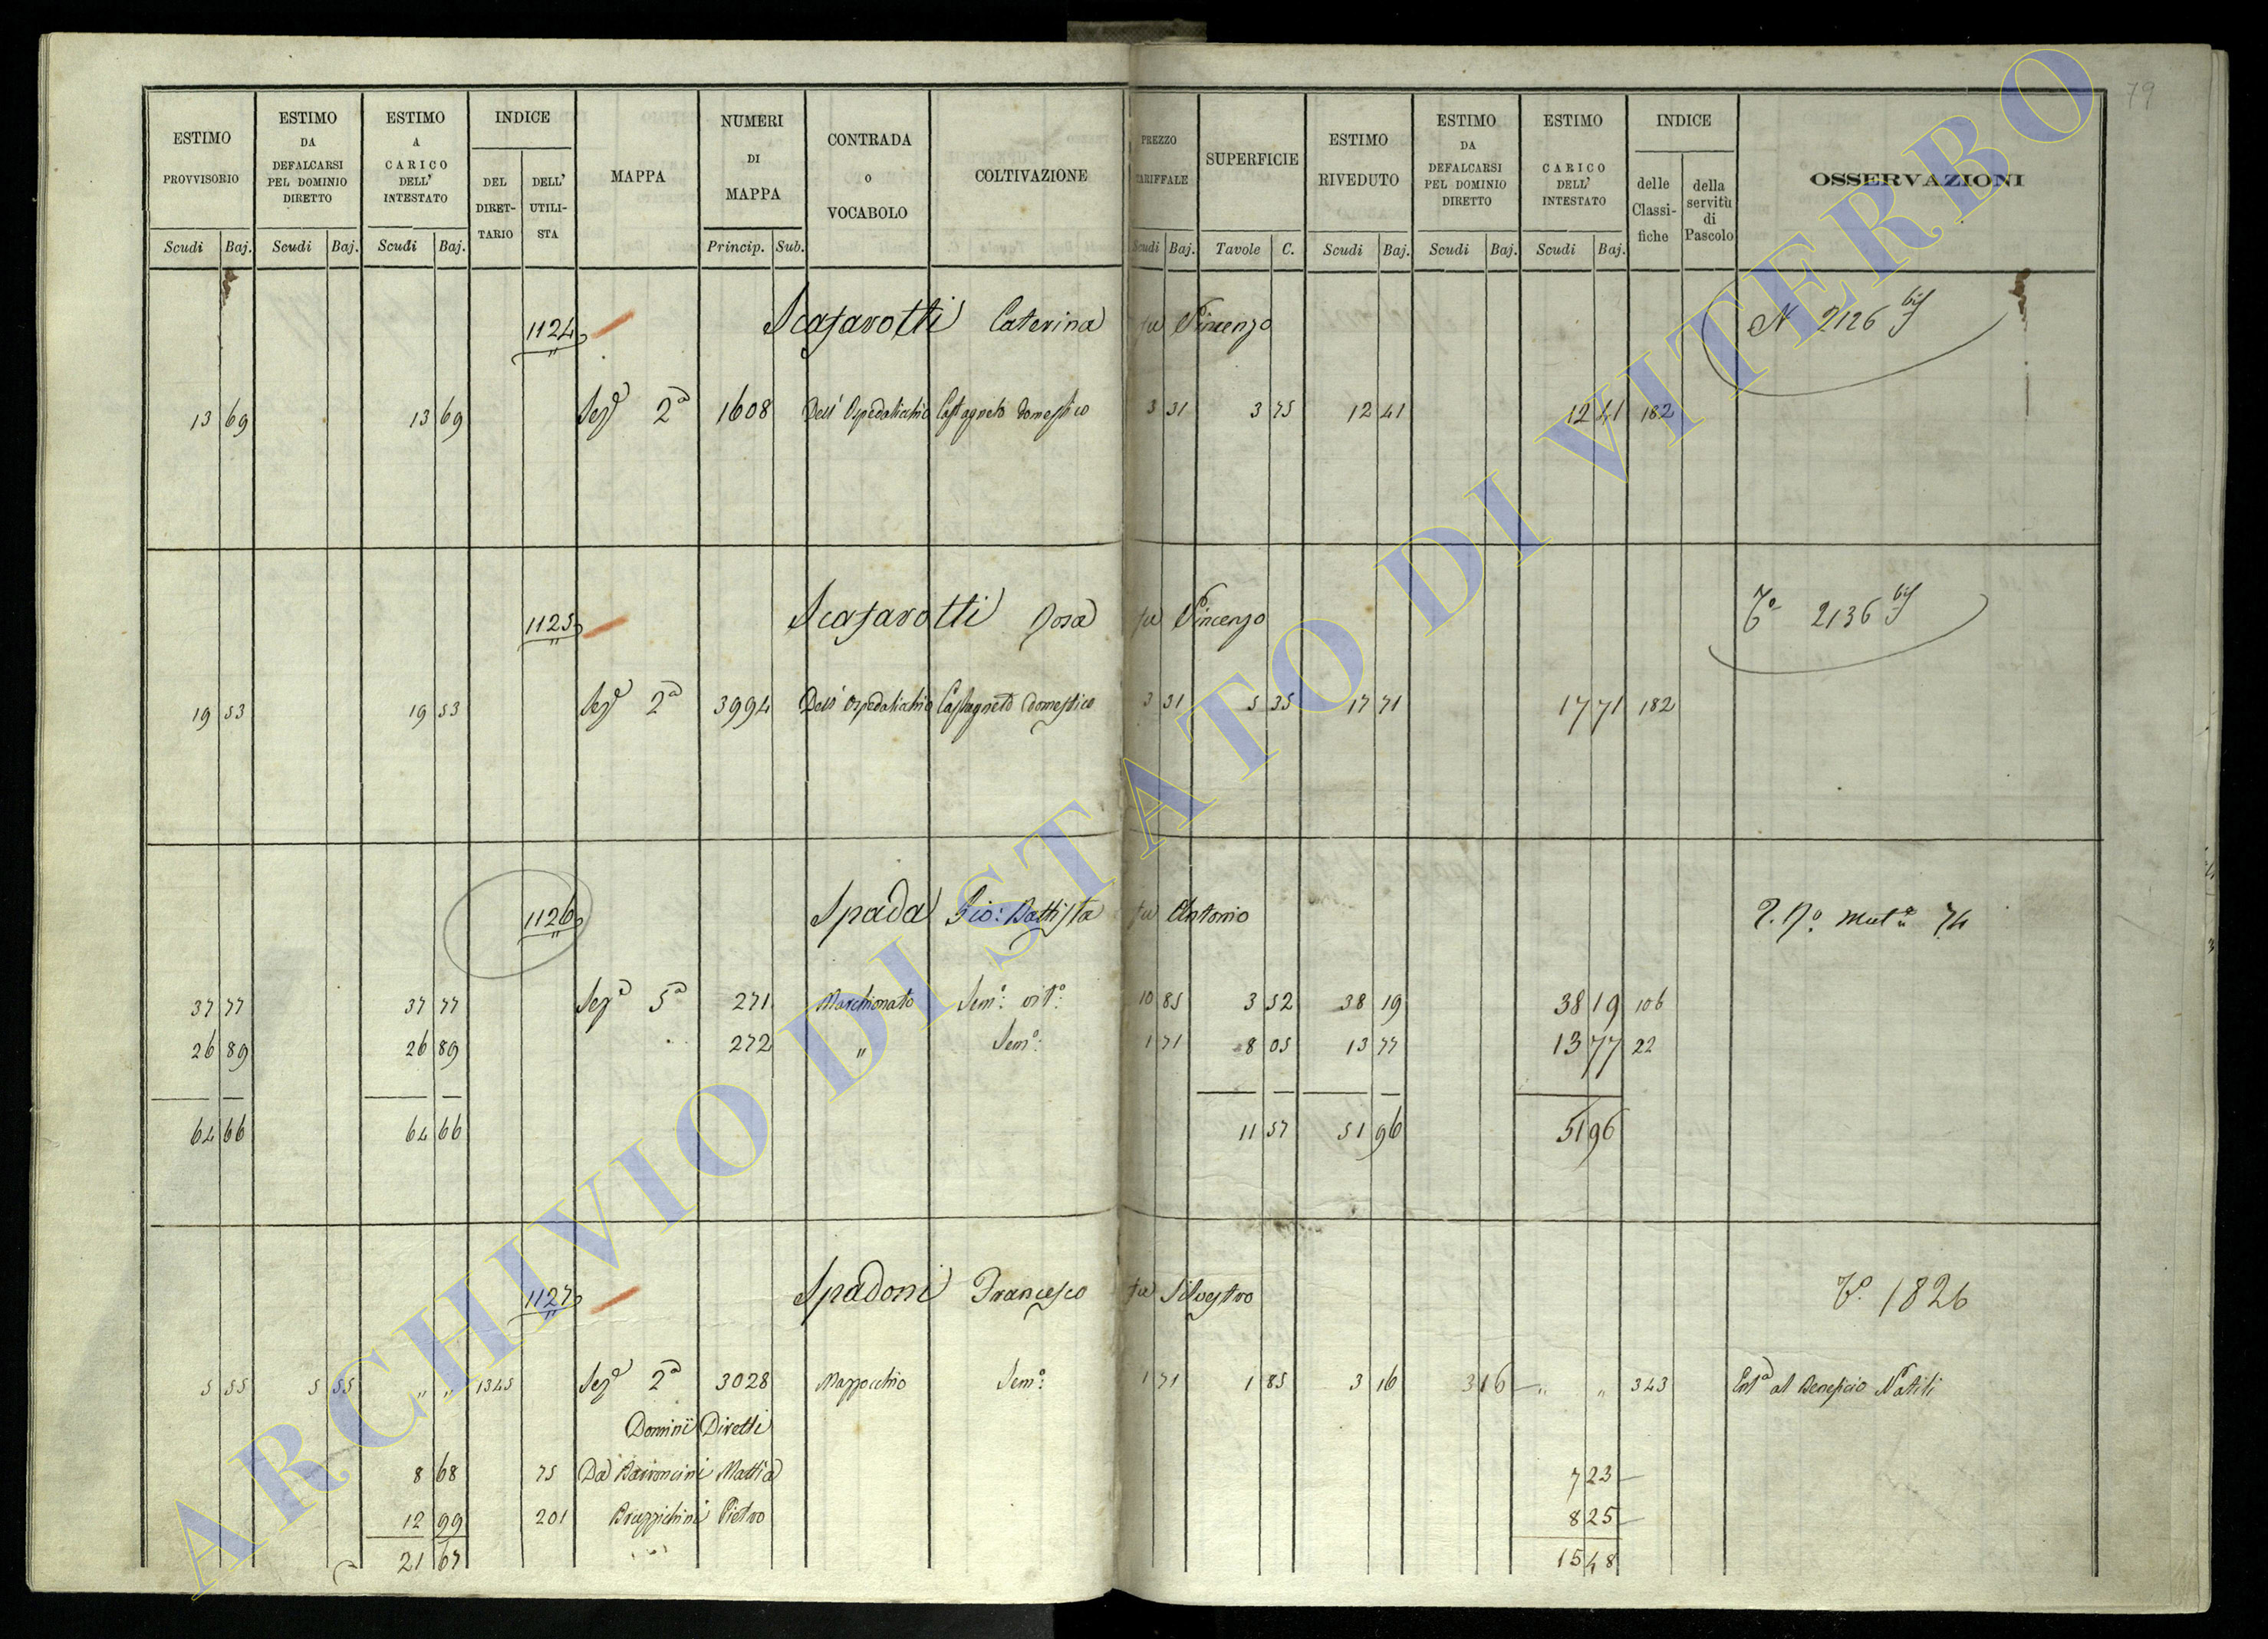 79
ESTIMO PROVVISORIO
ESTIMO DA DEFALCARSI PEL DOMINIO DIRETTO
ESTIMO A CARICO DELL' INTESTATO
INDICE
DEL DIRET-TARIO
DELL' UTILI-STA
MAPPA
NUMERI DI MAPPA
CONTRADA O VOCABOLO
COLTIVAZIONE
PREZZO TARIFFALE
SUPERFICIE
ESTIMO RIVEDUTO
ESTIMO DA DEFALCARSI PEL DOMINIO DIRETTO
ESTIMO CARICO DELL' INTESTATO
INDICE
delle Classi-fiche
della servitù di Pascolo
OSSERVAZIONI
Scudi Baj. Scudi Baj. Scudi Baj. Princip. Sub. Scudi Baj. Tavole C. Scudi Baj. Scudi Baj. Scudi Baj.
1124 Scafarotti Caterina fu Vincenzo N 2126 bis
13 69 13 69 Sez.a 2a 1608 Dell' Ospedalicchio Castagneto domestico 3 31 3 75 12 41 12 41 182
1125 Scafarotti Rosa fu Vincenzo 2136 bis
19 53 19 53 Sez.a 2a 3994 Dell' Ospedalicchio Castagneto domestico 3 31 5 35 17 71 17 71 182
1126 Spada Gio: Battista fu Antonio 74
37 77 37 77 Sez.a 5a 271 Marchionato Sem.o vit.o 10 85 3 52 38 19 38 19 106
26 89 26 89 272 " Sem.o 1 71 8 05 13 77 13 77 22
64 66 64 66 11 57 51 96 51 96
1127 Spadoni Francesco fu Silvestro 1826
5 55 5 55 " " 1345 Sez.a 2a 3028 Mazzocchio Sem.o 1 71 1 85 3 16 3 16 " " 343 Ent.a al Beneficio Natili
Dominii Diretti
8 68 75 Da Barroncini Mattia 7 23
12 99 201 Bruzzichini Pietro 8 25
21 67 15 48
ARCHIVIO DI STATO DI VITERBO